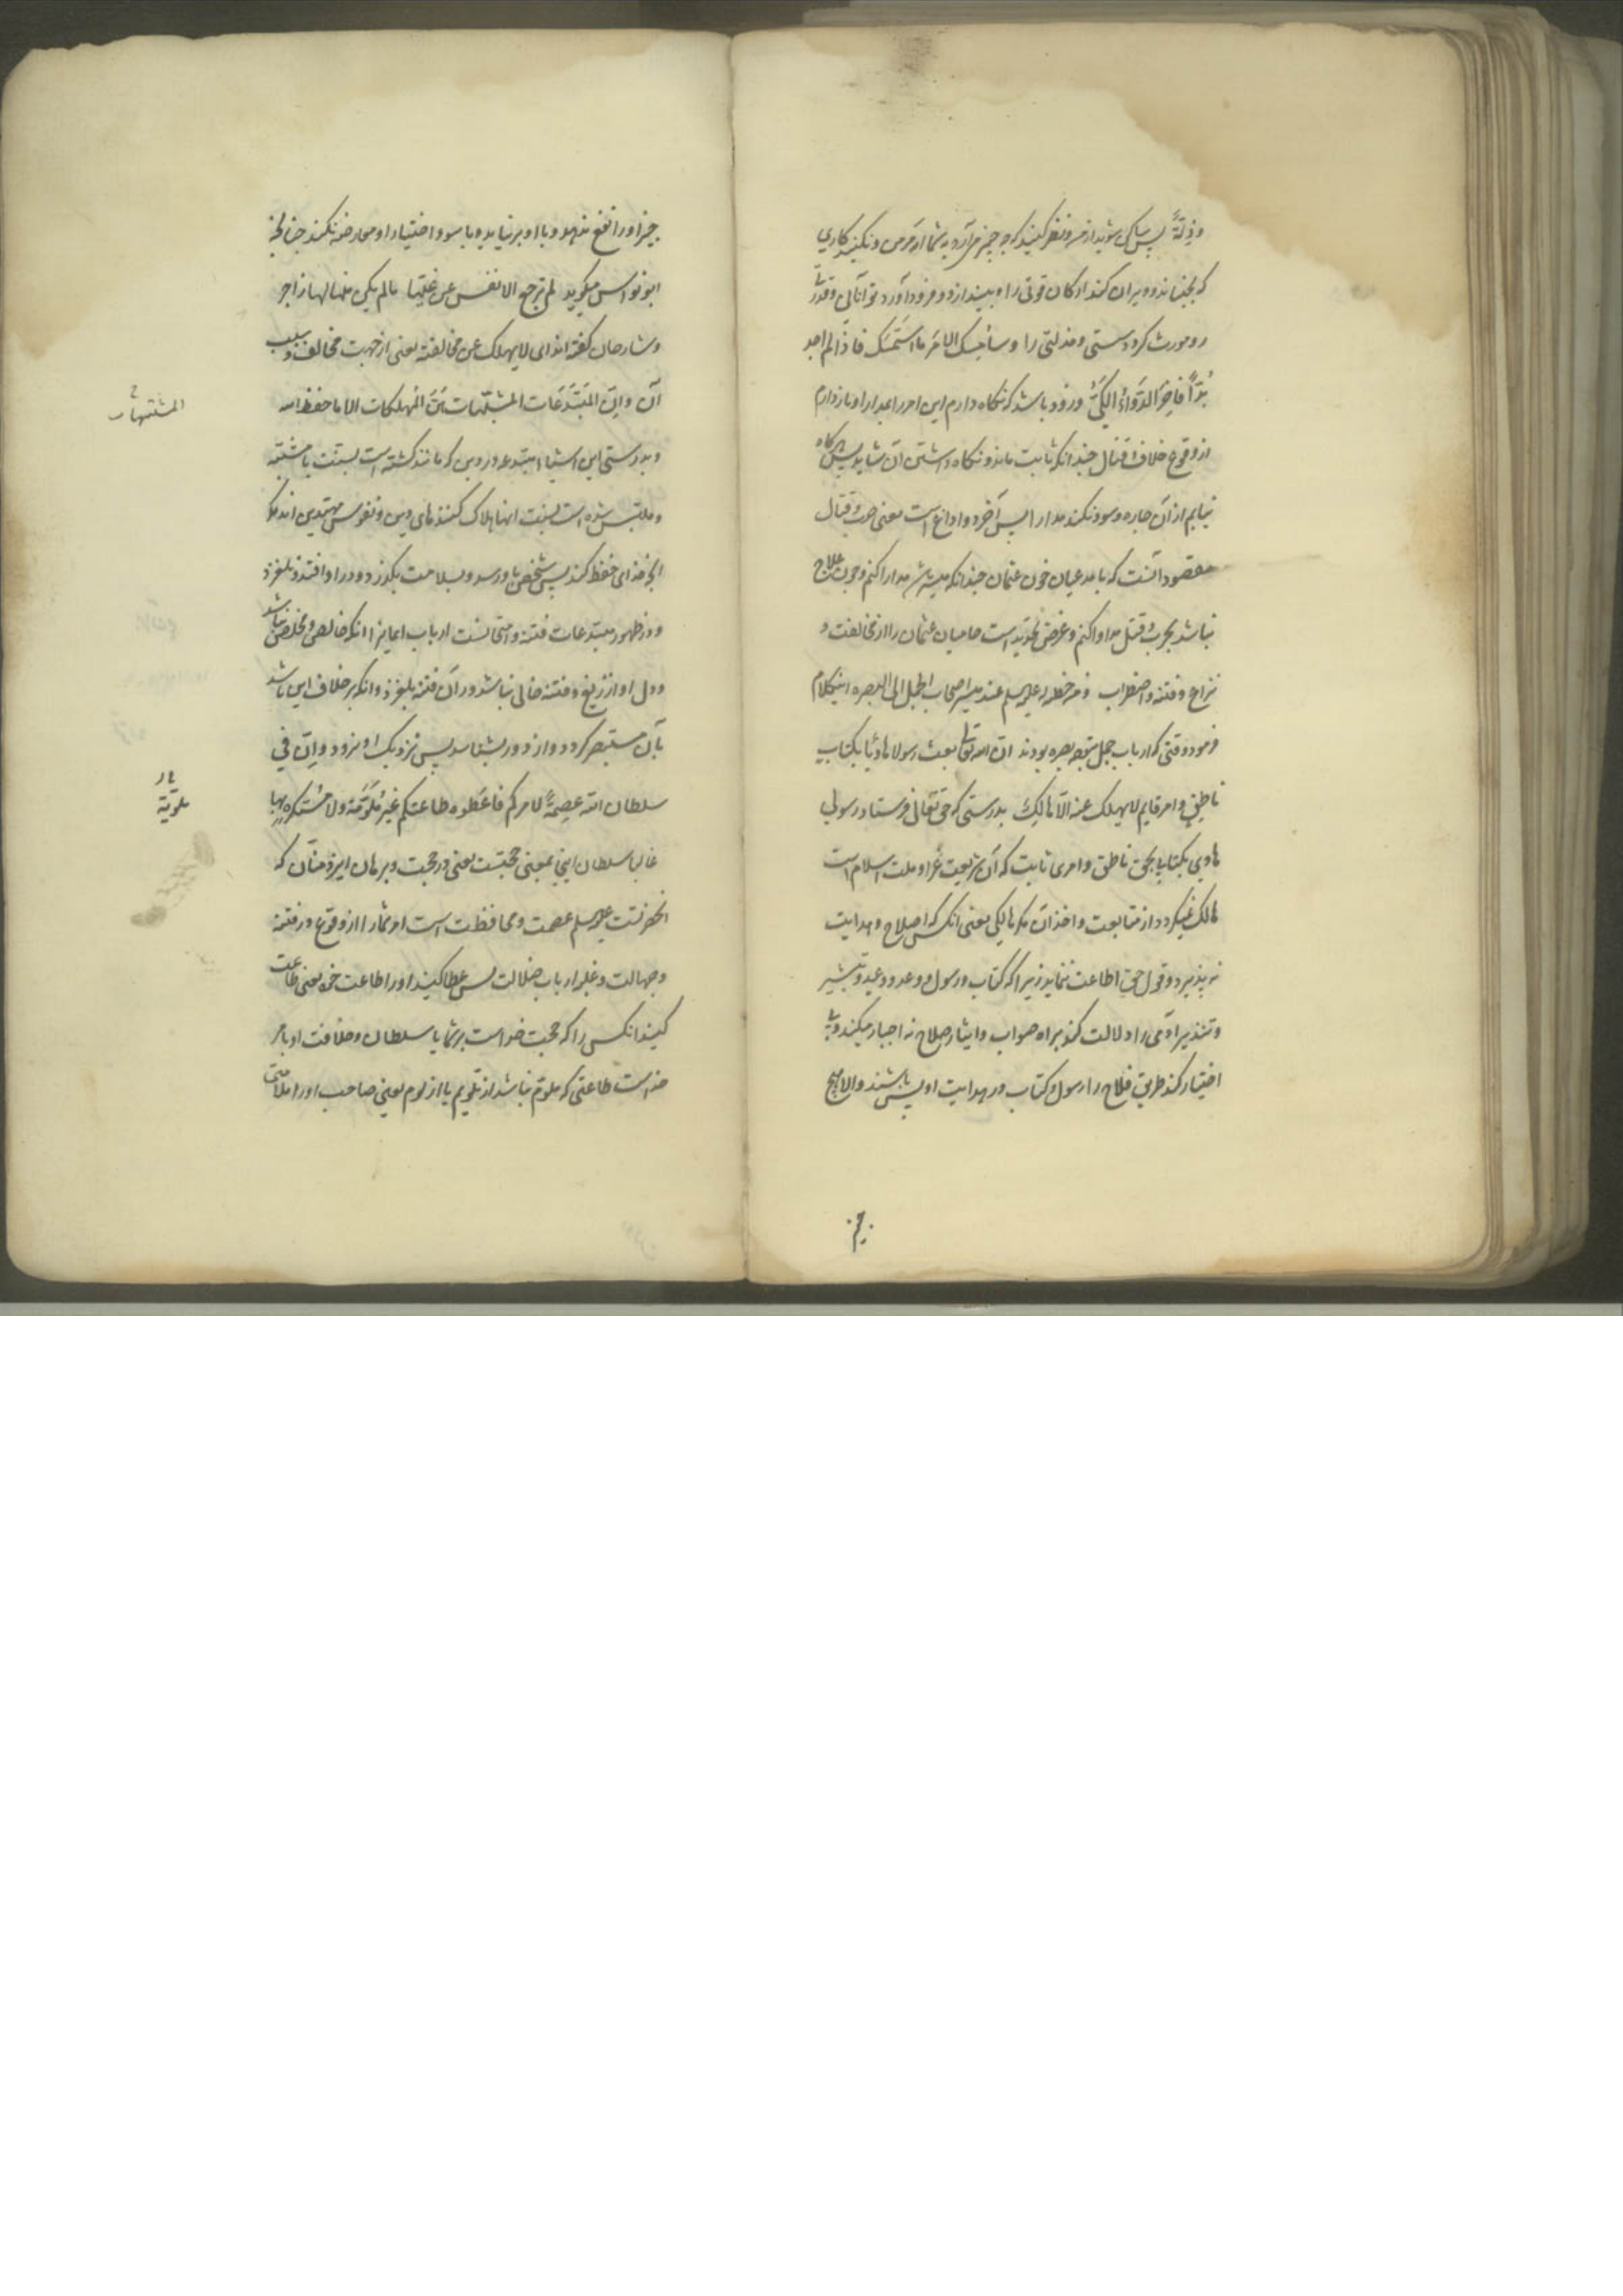 وذلة پس ساکن شوید از من و نظر کنید که چه چیز می‌آرد به شما از فرض و نکنید کاری
که بجنباند و ویران کند ارکان قوتی را و بیندازد و فرود آورد توانائی و قدرت
رو مورث گردد سستی و مذلتی را و سأمسک الامر ما استمسک فاذا لم اجد
بُدّاً فآخِرُ الدَّواءِ الکَیُّ و زود باشد که نگاه دارم این امر را بمدارا و باز دارم
از وقوع خلاف و قتال چندانکه ثابت ماند و نگاه داشتن آن شاید پس هرگاه
نیابم از آن چاره و سود نکند مدارا پس آخر دوا داغ است یعنی حرب و قتال
مقصود آنست که با مدعیان خون عثمان چندانکه میسر شد مدارا کنم و چون علاج
نباشد بحرب و قتل مداوا کنم و غرض تهدید است حامیان عثمان را از مخالفت و
نزاع و فتنه و اضطراب و من خطبه له علیه‌السلم عند مسیر اصحاب الجمل الی البصره اینکلام
فرمود وقتی که ارباب جمل متوجه بصره بودند انّ الله تعالی بعث رسولا هادیًا بکتاب
ناطقٍ و امر قایم لا یهلک عنه الّا هالِکٌ بدرستی که حق تعالی فرستاد رسولی
هادی بکتابی بحق ناطق و امری ثابت که آن شریعت غرّا و ملت اسلام است
هالک نمیگردد از متابعت و اخذ آن مگر هالکی یعنی آنکس که اصلاح و هدایت
نه پذیرد و قول حق اطاعت ننماید زیرا که کتاب و رسول و وعد و وعید و تبشیر
و تنذیر آدمی را دلالت کند براه صواب و ایثار صلاح نه اجبار میکند و
اختیار کند طریق فلاح را رسول و کتاب در هدایت او بس باشند و الا هیچ
چیز
چیز او را نفع ندهد و با او بر نیاید و با سوء اختیار او معارضه نکند چنانچه
ابو نواس میگوید لم ترجع الانفس عن غیّها ما لم یکن منها لها زاجر
و شارحان گفته‌اند ای لا یهلک عن مخالفته یعنی از جهت مخالفت و بسبب
آن و انّ المُبتَدَعَات المشبّهات هنّ المهلکات الا ما حفظ الله
و بدرستی این اشیاء مبتدعه در دین که مانند گشته است بسنت یا مشتبه
و ملتبس شده است بسنت اینها هلاک کننده‌های دین و نفوس مبتدعین‌اند مگر
آنچه خدای حفظ کند پس شخصی باو رسد و بسلامت بگذرد و در او افتد و نلغزد
و در ظهور مبتدعات فتنه و امتحانست ارباب ایمانرا آنکه خالص و مخلص باشد
و دل او از زیغ و فتنه خالی نباشد در آن فتنه بلغزد و آنکه بر خلاف این باشد
بآن مستبصر گردد و از دور بشناسد پس نزدیک او نرود و اِنّ فی
سلطان الله عِصمةً لامرکم فاعطوه طاعتکم غیرَ مُلَوَّمَة و لا مُستکرَهٍ بها
غالبا سلطان اینجا بمعنی حجتست یعنی در حجت و برهان ایزد منّان که
آنحضرتست علیه‌السلم عصمت و محافظت است امر شما را از وقوع در فتنه
و جهالت و غلبه ارباب ضلالت پس عطا کنید او را طاعت خود یعنی طاعت
کنید آنکس را که حجت خداست بر شما یا سلطان و خلافت او بامر
خداست طاعتی که ملوّم نباشد از تلویم یا از لوم یعنی صاحب او را ملامتی
المشتبهات
ملویة